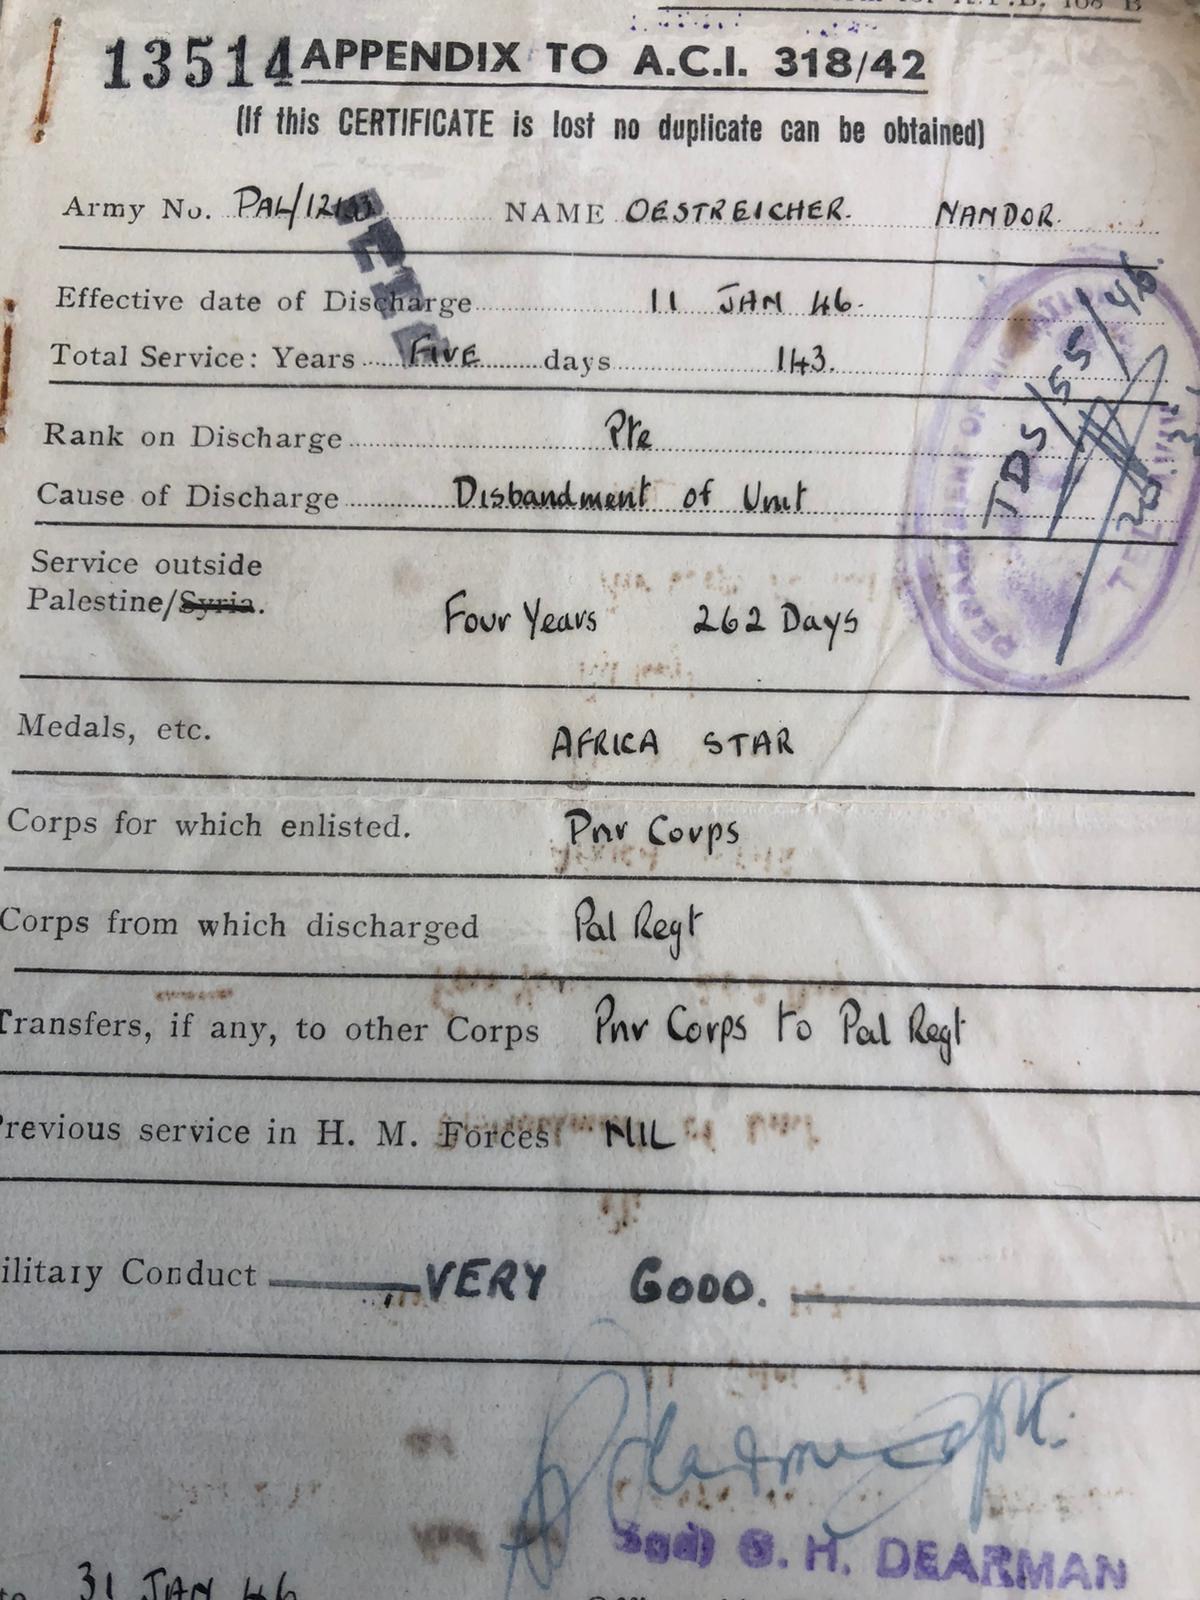 13514 APPENDIX TO A.C.I. 318/42
(If this CERTIFICATE is lost no duplicate can be obtained)
Army No. PAL/12 NAME OESTREICHER. NANDOR.
Effective date of Discharge 11 JAN 46.
Total Service: Years FIVE days 143.
Rank on Discharge Pte
Cause of Discharge Disbandment of Unit
TDS/55/46
DEPARTMENT OF
TEL
Service outside
Palestine/Syria. Four Years 262 Days
Medals, etc. AFRICA STAR
Corps for which enlisted. Pnr Corps
Corps from which discharged Pal Regt
Transfers, if any, to other Corps Pnr Corps to Pal Regt
Previous service in H. M. Forces NIL
ilitary Conduct VERY GOOD.
H. DEARMAN
31 JAN 46